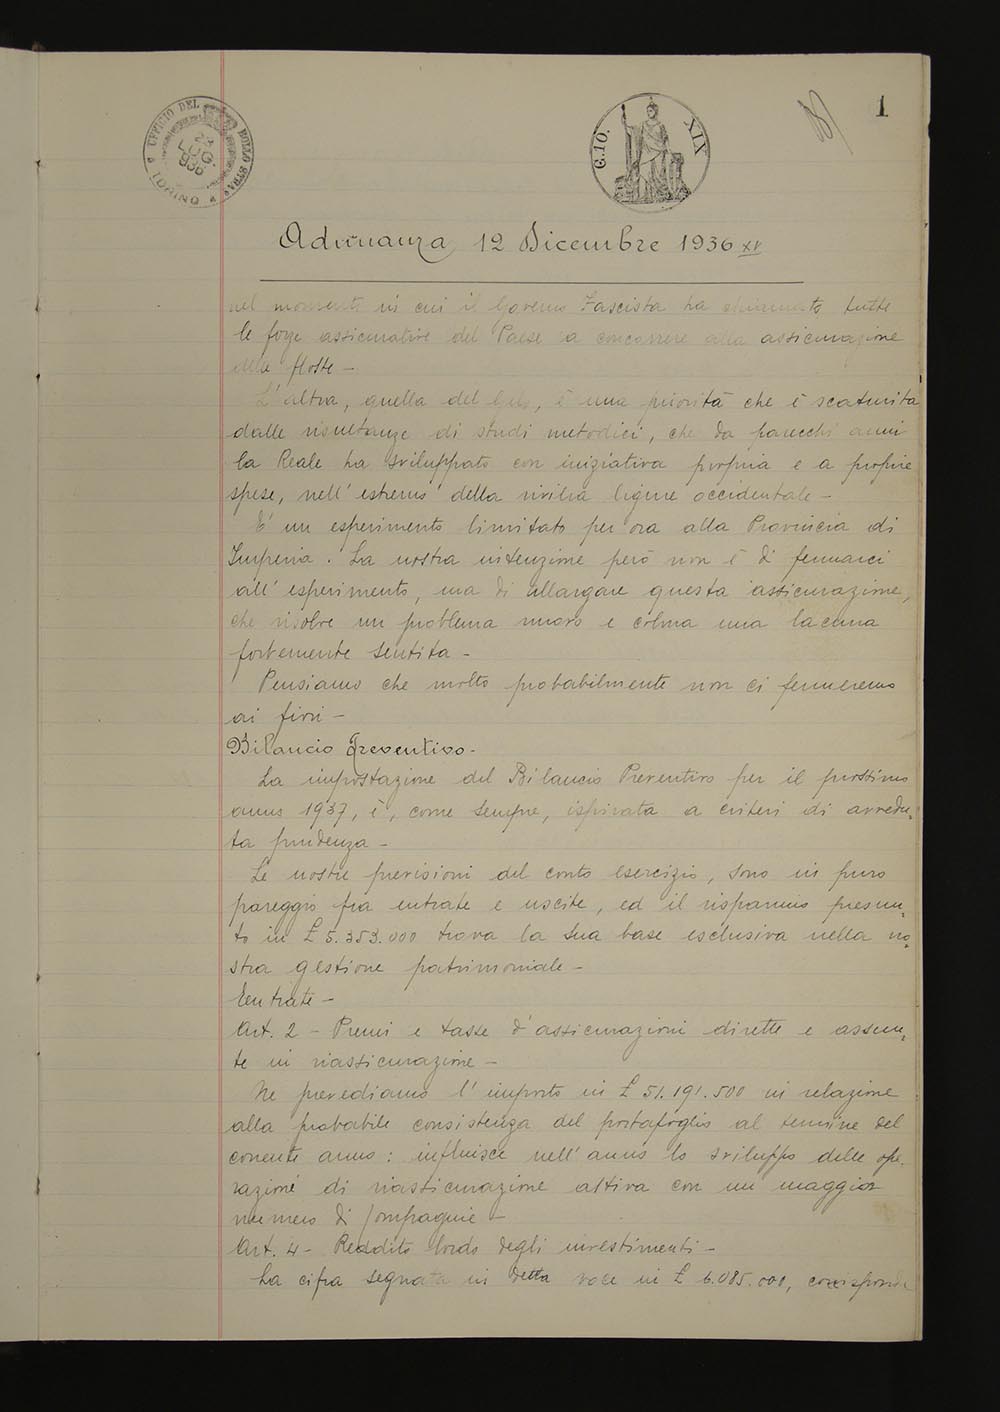 1
UFFICIO DEL BOLLO STRA
TORINO
22
LUG.
936
C.10.
XIX
Adunanza 12 Dicembre 1936 XV
nel momento in cui il Governo Fascista ha chiamato tutte
le forze assicurative del Paese a concorrere alla assicurazione
della flotta -
L'altra, quella del Gelo, è una priorità che è scaturita
dalle risultanze di studi metodici, che da parecchi anni
la Reale ha sviluppato con iniziativa propria e a proprie
spese, nell'estremo della riviera ligure occidentale -
E' un esperimento limitato per ora alla Provincia di
Imperia. La nostra intenzione però non è di fermarci
all'esperimento, ma di allargare questa assicurazione,
che risolve un problema nuovo e colma una lacuna
fortemente sentita -
Pensiamo che molto probabilmente non ci fermeremo
ai fiori -
Bilancio Preventivo -
La impostazione del Bilancio Preventivo per il prossimo
anno 1937, è, come sempre, ispirata a criteri di avvedu-
ta prudenza -
Le nostre previsioni del conto esercizio, sono in puro
pareggio fra entrate e uscite, ed il risparmio presun-
to in £ 5.353.000 trova la sua base esclusiva nella no-
stra gestione patrimoniale -
Entrate -
Art. 2 - Premi e tasse d'assicurazioni dirette e assun-
te in riassicurazione -
Ne prevediamo l'importo in £ 51.191.500 in relazione
alla probabile consistenza del portafoglio al termine del
corrente anno: influisce nell'anno lo sviluppo delle ope-
razioni di riassicurazione attiva con un maggior
numero di Compagnie -
Art. 4 - Reddito lordo degli investimenti -
La cifra segnata in detta voce in £ 6.085.000, corrisponde